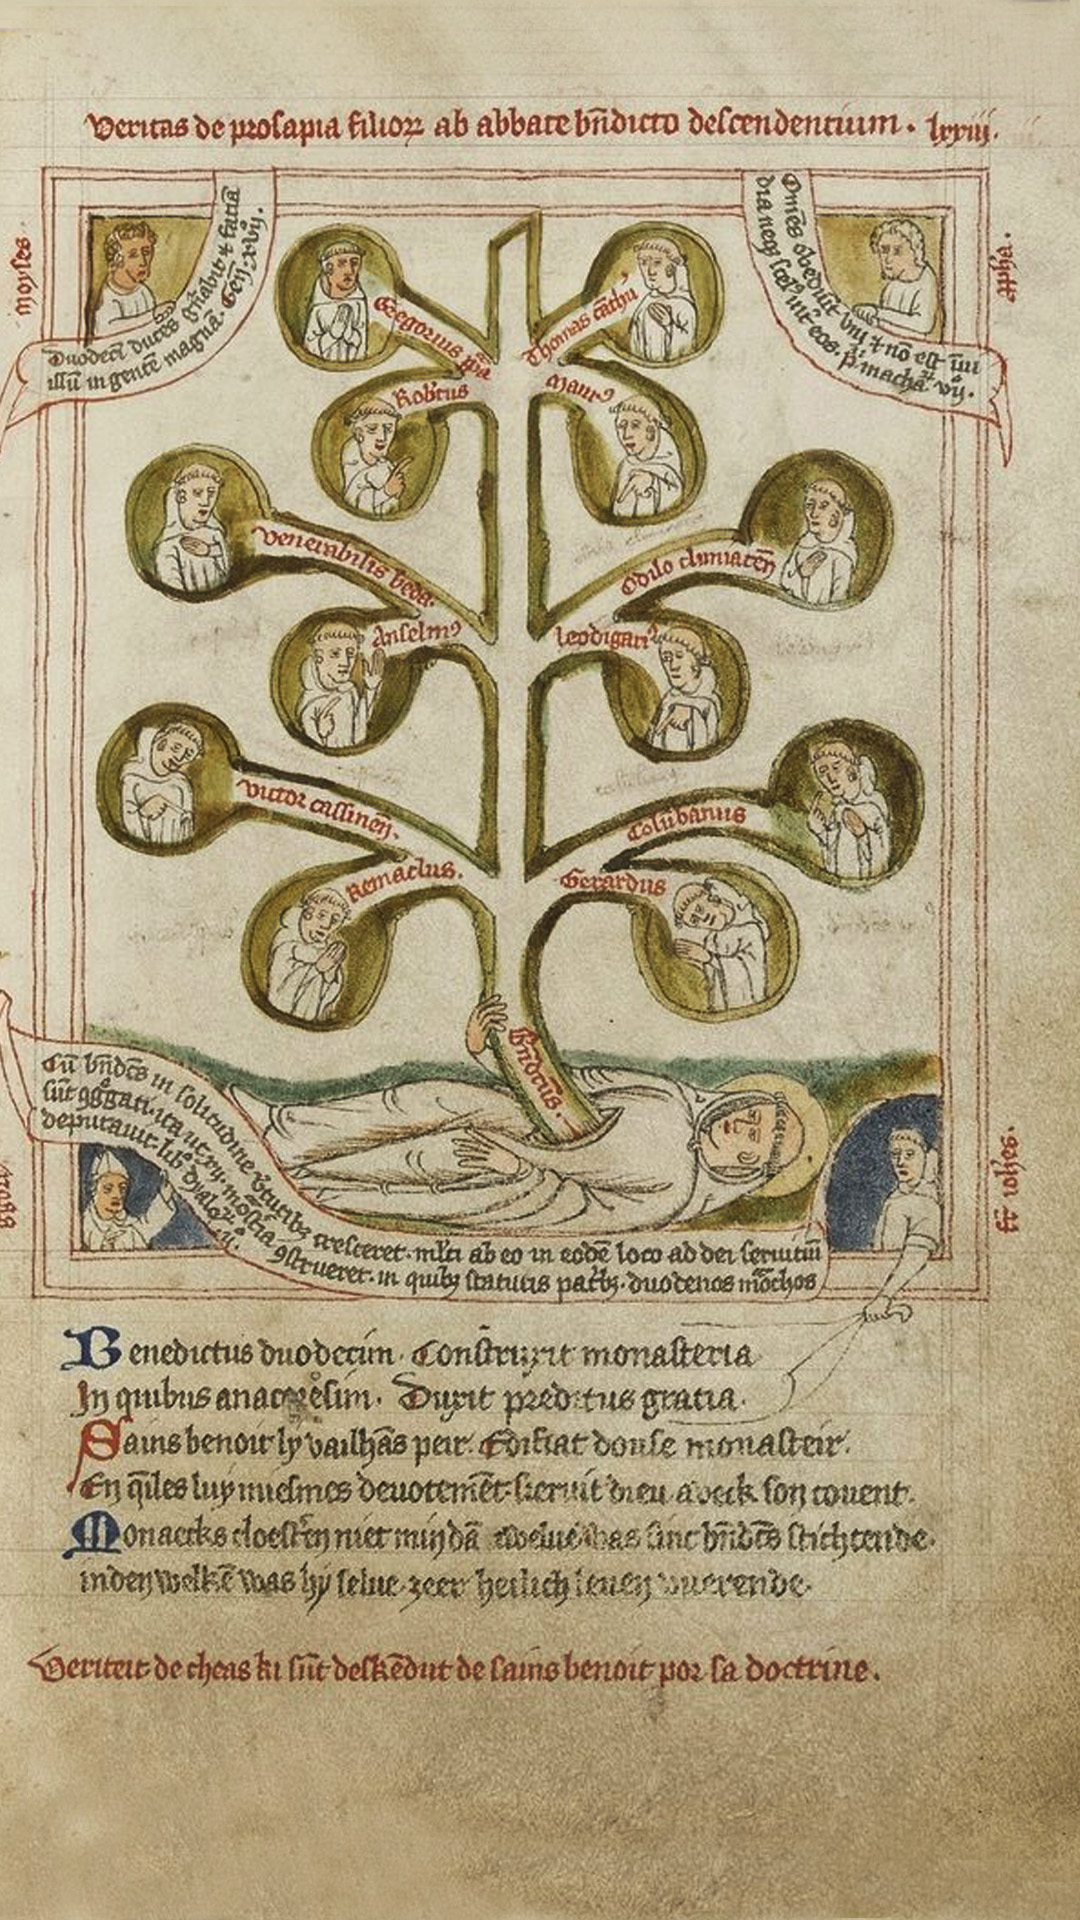 Veritas de prosapia filiorꝝ ab abbate bn̄dicto descendentium. lxxiii.
moyses.
Duodecī duces gn̄abit ⁊ faciā
illū in gentē magnā. Gen̄. xvij.
Om̄es obediūt vni ⁊ nō est īui
dia neqꝫ int̄ eos. p̄. machā. viij.
Gregorius pā
Thomas
Rob̄tus
Maurꝰ
Venerabilis beda.
Odilo cluniacēn
Anselmꝰ
leodigariꝰ
victor cassinen̄.
Colūbanus
Remaclus.
Gerardus
bn̄dctus.
Cū bn̄dc̄s in solitudine v̄tutibꝫ cresceret. ml̄ti ab eo in eodē loco ad dei seruitiū
sūt ꝯg̊gati. ita ut xij. ꝯstrueret. in quibꝫ statutis pat̄bꝫ. duodenos mōchos
deputauit. lib̊ dyalogꝝ. ij.
fr̄ ioh̄es.
Benedictus duodecim. Construxit monasteria
In quibus Duxit preditus gratia.
Sains benoit ly vailhās peir. Edifiat douse monasteir.
En q̄iles luy miesmes deuotemēt. seruit dieu aveck son couent.
Monaecks cloestr̄en niet myn dā twelue was sinc bn̄dc̄s stichtende.
in den welkē was hy selue. zeer heilich leuen vuerende.
Veriteit de cheas ki sūt deskēdut de sains benoit por sa doctrine.